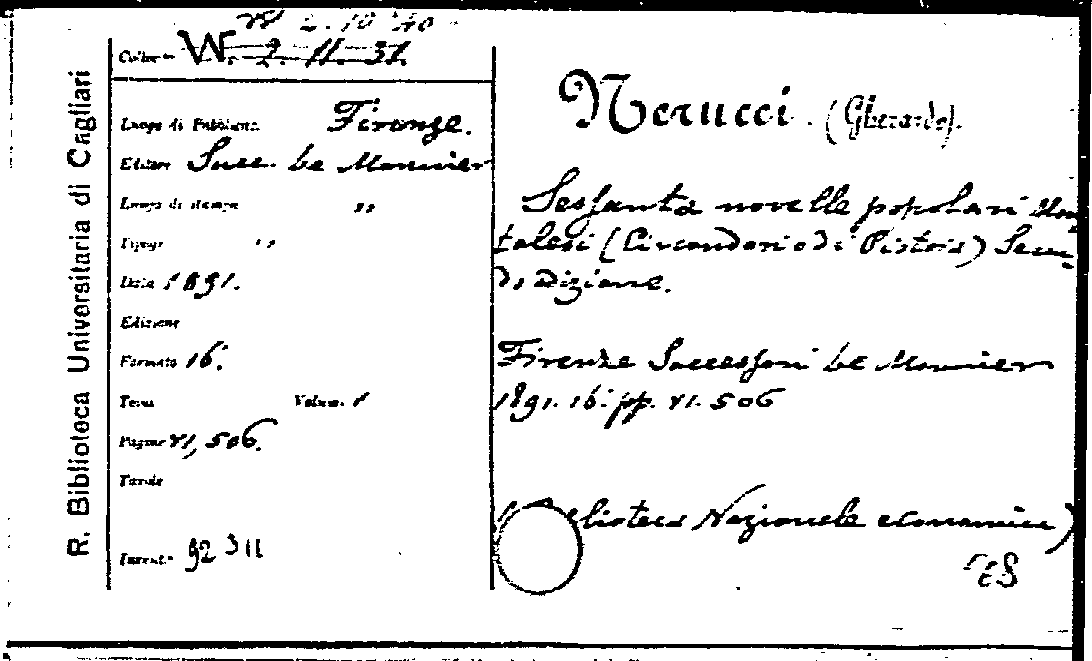 W 2. 10 40
W. 2. 11. 31.
R. Biblioteca Universitaria di Cagliari
Luogo di Pubblicaz. Firenze.
Editore Succ. Le Monnier
Luogo di stampa "
Tipogr. "
Data 1891.
Edizione
Formato 16.
Tomi Volum. 1
Pagine VI, 506.
Tavole
Invent. 92311
Nerucci. (Gherardo).
Sessanta novelle popolari Mon-
talesi (Circondario di Pistoia) Secon-
da edizione.
Firenze Successori Le Monnier
1891. 16. pp. VI. 506
(Biblioteca Nazionale economica)